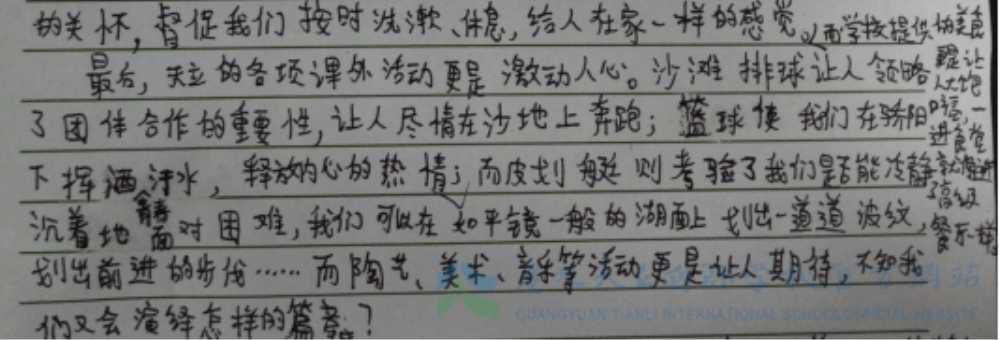 的关怀，督促我们按时洗漱、休息，给人在家一样的感觉。而学校提供的美食
更是让
人大饱
口福，一
进食堂
就像进
了高级
餐厅一样
最后，天立的各项课外活动更是激动人心。沙滩排球让人领略
了团体合作的重要性，让人尽情在沙地上奔跑；篮球使我们在骄阳
下挥洒汗水，释放内心的热情；而皮划艇则考验了我们是否能冷静
沉着地面对困难，我们可以在如平镜一般的湖面上划出一道道波纹，
划出前进的步伐……而陶艺、美术、音乐等活动更是让人期待，不知我
们又会演绎怎样的篇章？
GUANGYUAN TIANLI INTERNATIONAL SCHOOL OFFICIAL WEBSITE